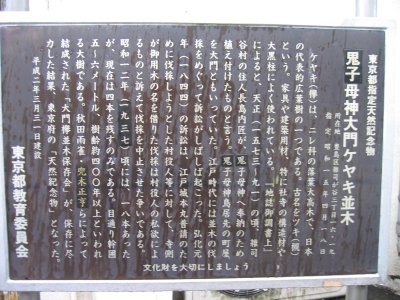 東京都指定天然記念物
鬼子母神大門ケヤキ並木
所在地 豊島区雑司が谷三丁目
指定 昭和一五年四月
ケヤキ(欅)は、ニレ科の落葉大高木で、日本
の代表的広葉樹の一つである。古名をツキ(槻)
という。家具や建築用材、特に社寺の構造材や
大黒柱によく使われている。「地誌御調書上」
によると、天正(一五七三〜九一)の頃、雑司
谷村の住人長島内匠が、鬼子母神へ奉納のため
植え付けたものと言う。鬼子母神島居先の町屋
を大門ともいっていた。江戸時代には並木の伐
採をめぐって訴訟がしばしば起こった。弘化元
年(一八四四)の訴訟は、江戸城本丸普請のた
めに伐採しようとした村役人等に対して、寺側
が御用木の名を借りた伐採は村役人の私欲によ
るものと訴えて伐採を中止させた争いである。
昭和一二年(一九三七)頃には、一八本あった
が、現在は四本を残すのみである。目通り幹囲
五〜六メートル、樹齢約四〇〇年以上といわれ
る大樹である。秋田雨雀・兜木正亨らによって
結成された、「大門欅並木保存会」が、保存に尽
力した結果、東京府の「天然記念物」となった。
平成二年三月三一日建設
東京都教育委員会
文化財を大切にしましょう